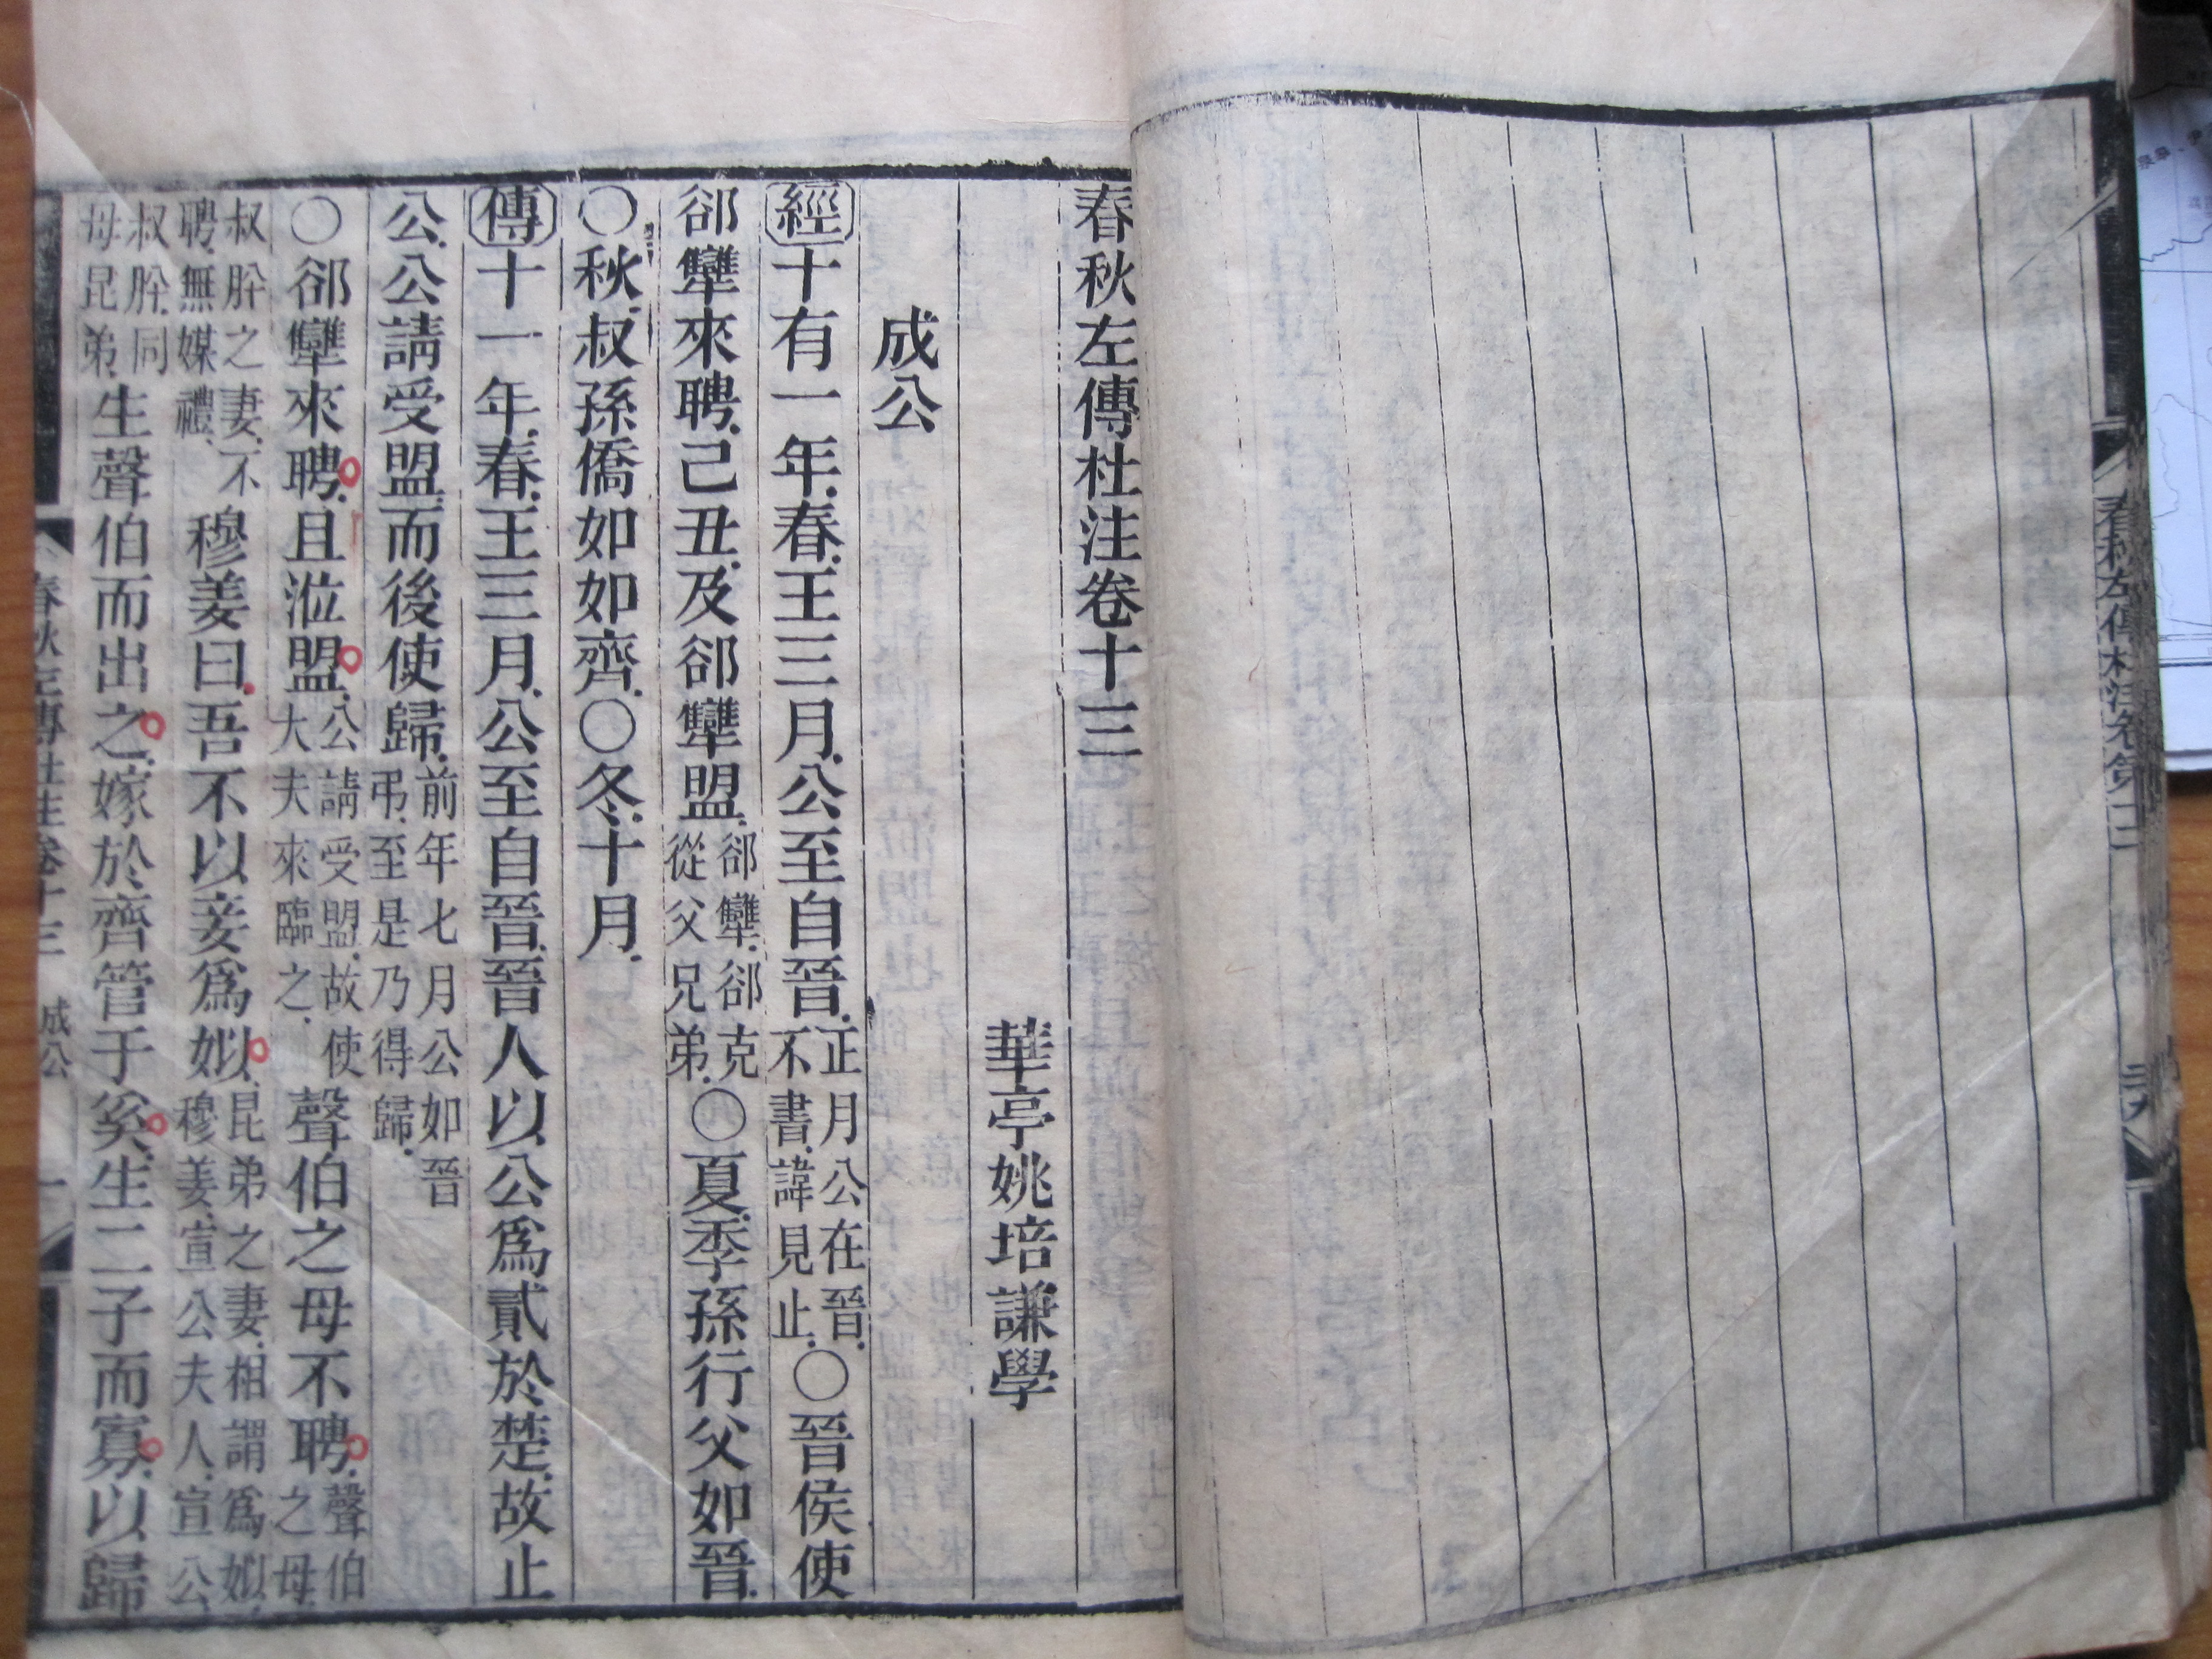 春秋左傳杜注卷第十二
春秋左傳杜注卷十三
華亭姚培謙學
成公
經十有一年春王三月公至自晉正月公在晉不書諱見止○晉侯使
郤犨來聘己丑及郤犨盟郤犨郤克從父兄弟○夏季孫行父如晉
○秋叔孫僑如如齊○冬十月
傳十一年春王三月公至自晉晉人以公爲貳於楚故止
公公請受盟而後使歸前年七月公如晉弔至是乃得歸
○郤犨來聘且涖盟公請受盟故使大夫來臨之聲伯之母不聘聲伯之母
叔肸之妻不聘無媒禮穆姜曰吾不以妾爲姒昆弟之妻相謂爲姒穆姜宣公夫人宣公
叔肸同母昆弟生聲伯而出之嫁於齊管于奚生二子而寡以歸
春秋左傳杜注卷十三 成公 一